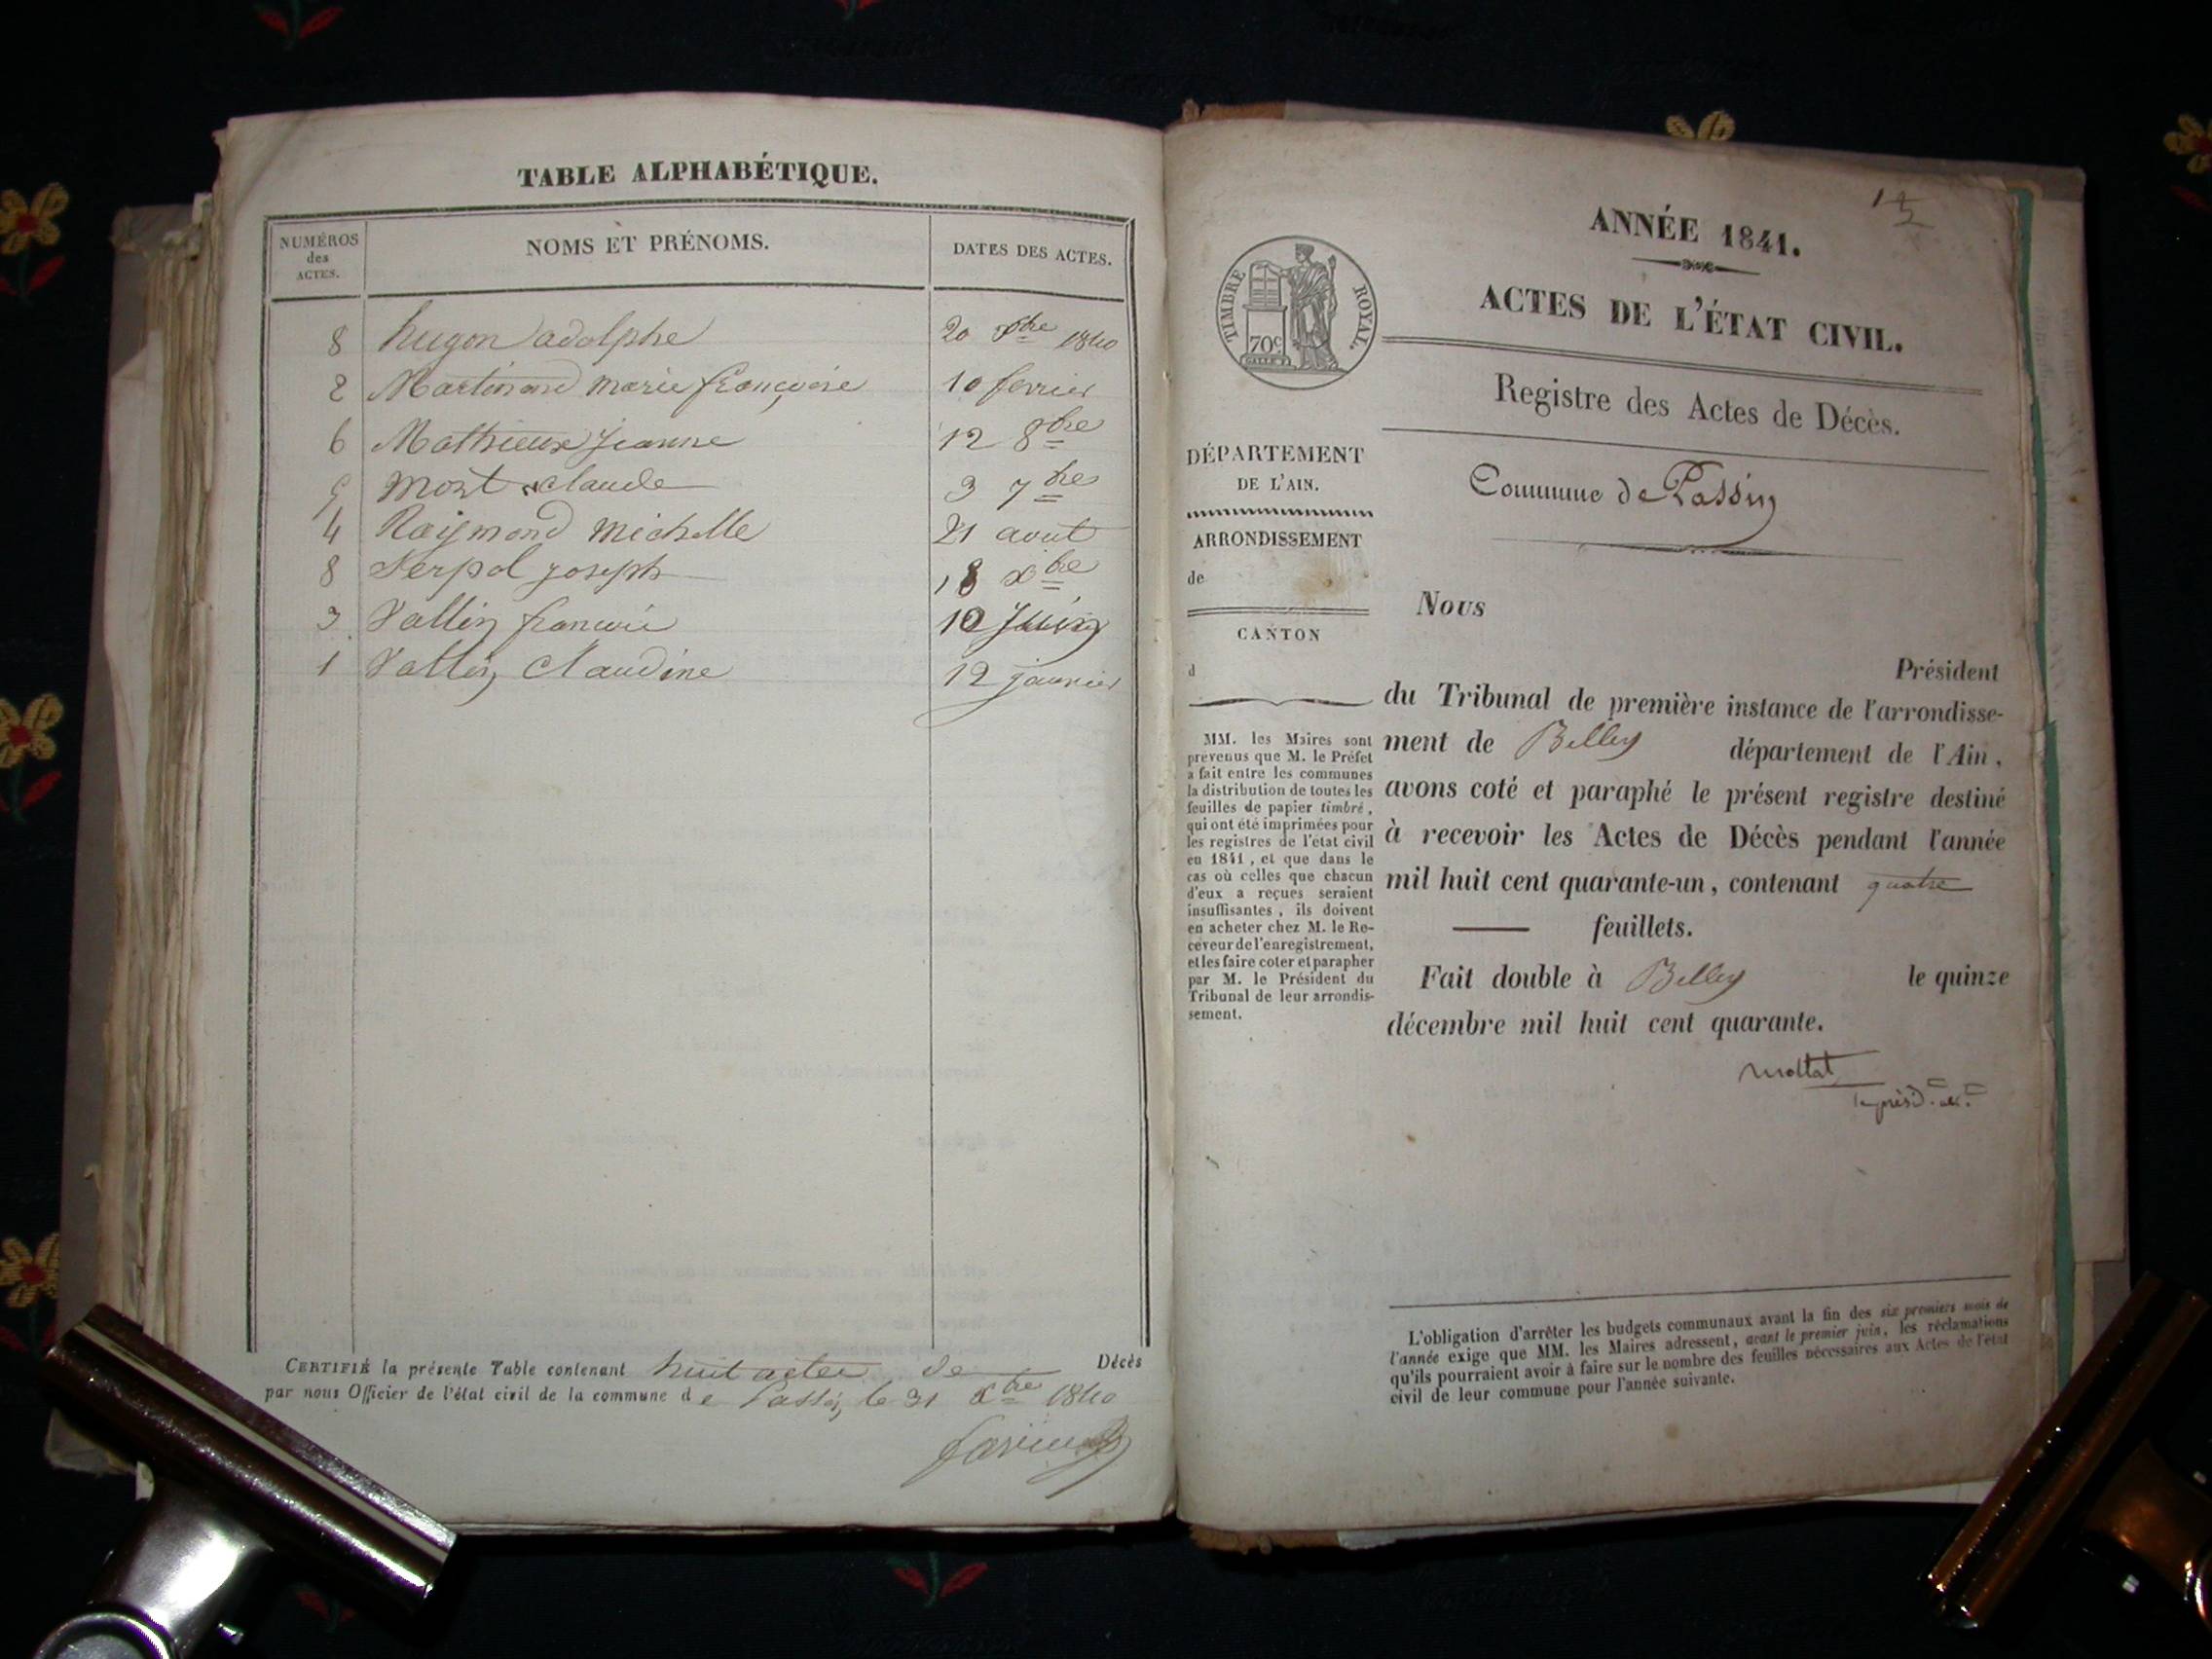 TABLE ALPHABÉTIQUE.
NUMÉROS des ACTES.
NOMS ET PRÉNOMS.
DATES DES ACTES.
8 hugon adolphe 20 Xbre 1840
2 Martinand marie françoise 10 fevrier
6 Mathieux Jeanne 12 8bre
5 Mort Claude 3 7bre
4 Raymond Michelle 21 aout
8 Serpol joseph 18 Xbre
3 Vallin francois 10 Juin
1 Vallin Claudine 12 janvier
CERTIFIÉ la présente Table contenant huit actes de Décès
par nous Officier de l'état civil de la commune de Passin, le 31 Xbre 1840
ANNÉE 1841.
ACTES DE L'ÉTAT CIVIL.
TIMBRE ROYAL.
70c
Registre des Actes de Décès.
Commune de Passin
DÉPARTEMENT
DE L'AIN.
ARRONDISSEMENT
de
CANTON
d
MM. les Maires sont
prévenus que M. le Préfet
a fait entre les communes
la distribution de toutes les
feuilles de papier timbré,
qui ont été imprimées pour
les registres de l'état civil
en 1841, et que dans le
cas où celles que chacun
d'eux a reçues seraient
insuffisantes, ils doivent
en acheter chez M. le Re-
ceveur de l'enregistrement,
et les faire coter et parapher
par M. le Président du
Tribunal de leur arrondis-
sement.
Nous
Président
du Tribunal de première instance de l'arrondisse-
ment de Belley département de l'Ain,
avons coté et paraphé le présent registre destiné
à recevoir les Actes de Décès pendant l'année
mil huit cent quarante-un, contenant quatre
feuillets.
Fait double à Belley le quinze
décembre mil huit cent quarante.
Mollat
L'obligation d'arrêter les budgets communaux avant la fin des six premiers mois de
l'année exige que MM. les Maires adressent, avant le premier juin, les réclamations
qu'ils pourraient avoir à faire sur le nombre des feuilles nécessaires aux Actes de l'état
civil de leur commune pour l'année suivante.